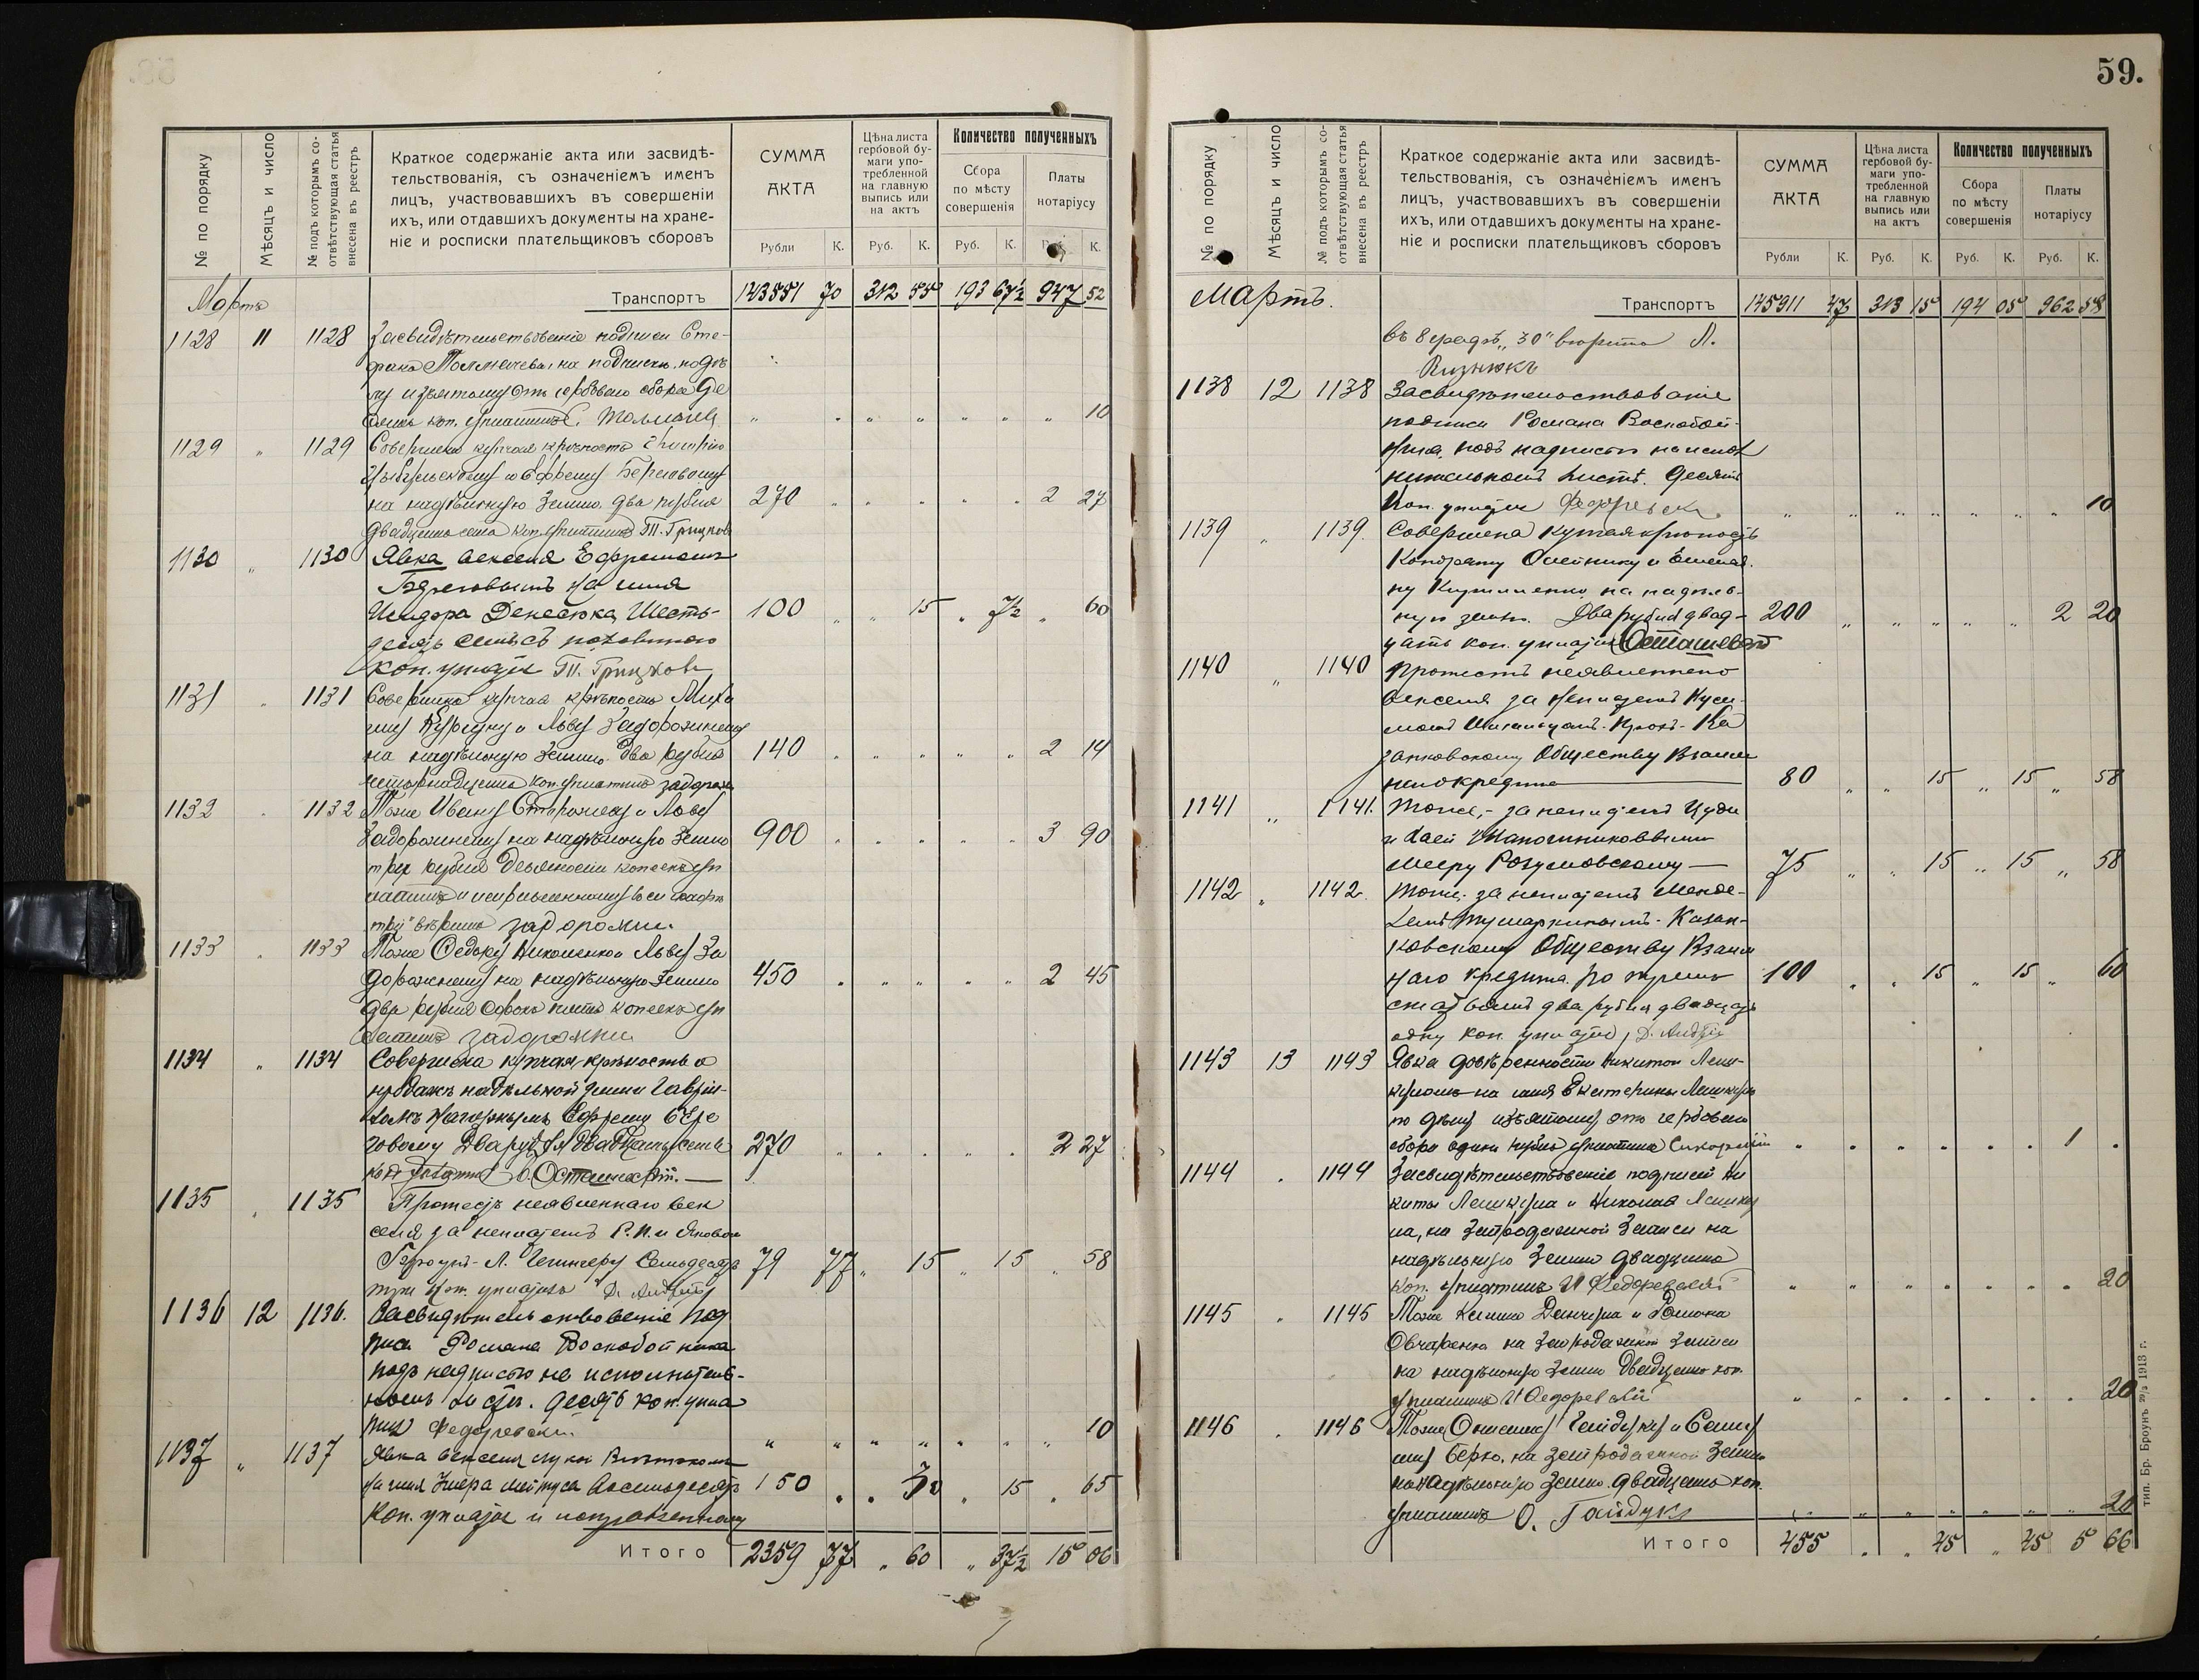 59.
№ по порядку
Мѣсяцъ и число
№ подъ которымъ соотвѣтствующая статья внесена въ реестръ
Краткое содержаніе акта или засвидѣ-
тельствованія, съ означеніемъ именъ
лицъ, участвовавшихъ въ совершеніи
ихъ, или отдавшихъ документы на хране-
ніе и росписки плательщиковъ сборовъ
СУММА
АКТА
Рубли К.
Цѣна листа
гербовой бу-
маги упо-
требленной
на главную
выпись или
на актъ
Руб. К.
Количество полученныхъ
Сбора
по мѣсту
совершенія
Руб. К.
Платы
нотаріусу
Руб. К.
Мартъ
Транспортъ 143551 70 312 55 193 67½ 947 52
1128 11 1128 Засвидѣтельствованіе подписи Сте-
фана Толмачева, на подписки, по дѣ
лу изъятому отъ гербоваго сбора Де
сять коп. уплатилъ С. Толмачев " " " " " " " 10
1129 " 1129 Совершена купчая крѣпость Дмитрію
и Ефрему Береговому
на надѣльную землю два рубля 270 " " " " " 2 27
двадцать семь коп. уплатилъ П. Грицков
1130 " 1130 Явка векселя Ефремомъ
Береговымъ на имя
Исидора Денисюка Шесть- 100 " " 15 " 7½ " 60
десятъ семь съ половиною
коп. уплатилъ П. Грицков
1131 " 1131 Совершена купчая крѣпость Миха
илу и Льву Задорожнему
на надѣльную землю два рубля 140 " " " " " 2 14
четырнадцать коп. уплатилъ задорожн
1132 " 1132 Тоже Ивану и Льву
Задорожнему на надѣльную землю 900 " " " " " 3 90
три рубля девяносто копеекъ уп
латилъ и исправленному
три" вѣрить задорожни.
1133 " 1133 Тоже Федоку Николенко и Льву За
дорожнему на надѣльную землю 450 " " " " " 2 45
два рубля сорокъ пять копеекъ уп
латилъ задорожни
1134 " 1134 Совершена купчая крѣпость о
продажѣ надѣльной земли Гаврiи-
ломъ Нагорнымъ Ефрему Бере
говому Два рубля двадцать семь 270 " " " " " 2 27
коп уплатилъ О. Осташевскій.
1135 " 1135 Протестъ неявленнаго век
селя за неплатежъ Р. И. и Яковом
Л. Гептеру Семьдесятъ 79 77 " 15 " 15 " 58
три коп. уплатилъ Д.
1136 12 1136. Засвидѣтельствованіе под
писи Романа Воскобойника
подъ надписью на исполнитель-
номъ листѣ. Десять коп. упла
тилъ Федоревски. " " " " " " " 10
1137 " 1137 Явка векселя
на имя 150 " " 30 " 15 " 65
коп. уплатилъ и исправленному
Итого 2359 77 " 60 " 37½ 15 06
№ по порядку
Мѣсяцъ и число
№ подъ которымъ соотвѣтствующая статья внесена въ реестръ
Краткое содержаніе акта или засвидѣ-
тельствованія, съ означеніемъ именъ
лицъ, участвовавшихъ въ совершеніи
ихъ, или отдавшихъ документы на хране-
ніе и росписки плательщиковъ сборовъ
СУММА
АКТА
Рубли К.
Цѣна листа
гербовой бу-
маги упо-
требленной
на главную
выпись или
на актъ
Руб. К.
Количество полученныхъ
Сбора
по мѣсту
совершенія
Руб. К.
Платы
нотаріусу
Руб. К.
Мартъ.
Транспортъ 145911 47 313 15 194 05 962 58
въ 8 графѣ "30" вѣрить Л.
1138 12 1138 Засвидѣтельствованіе
подписи Романа Воскобой-
ника подъ надписью на испол
нительномъ листѣ. Десять
коп. уплатилъ Федоревски. " " " " " " " 10
1139 " 1139. Совершена купчая крѣпость
Кондрату Олейнику и
на надѣль-
ную землю. Два рубля двад- 200 " " " " " 2 20
цать коп. уплатилъ Осташевскій
1140 " 1140 Протестъ неявленнаго
векселя за неплатежъ
Ка
занковскому Обществу Взаим
наго кредита 80 " " 15 " 15 " 58
1141 " 1141. Тоже, - за неплатежъ
и Хаей
Мееру Розумовскому 75 " " 15 " 15 " 58
1142 " 1142. Тоже, за неплатежъ Менде-
лемъ Тумаркинымъ - Казан-
ковскому Обществу Взаим
наго кредита. По тремъ 100 " " 15 " 15 " 60
статьямъ два рубля двадцать
одну коп. уплатилъ Д.
1143 13 1143 Явка довѣренности Никитою Лешк-
уномъ на имя Екатерины Лешкунъ
по дѣлу изъятому отъ гербоваго
сбора одинъ рубль уплатила " " " " " " 1 "
1144 " 1144 Засвидѣтельствованіе подписей Ни
киты Лешкуна и Николая Лешку
на, на запродажной записи на
надѣльную землю двадцать
коп. уплатилъ И Федоревскій " " " " " " " 20
1145 " 1145 Тоже и Романа
Овчаренка на запродажной записи
на надѣльную землю двадцать коп.
уплатилъ И Федоревскій " " " " " " " 20
1146 " 1146 Тоже Онисима Гайдука и
Берко, на запродажной запись
на надѣльную землю двадцать коп.
уплатилъ О. Гайдукъ " " " " " " " 20
Итого 455 " " 45 " 45 5 66
тип. Бр. Броунъ 1913 г.